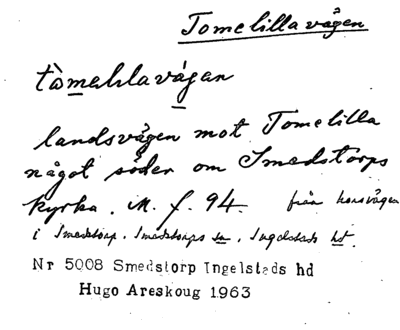 Tomelillavägen
tòmeh̄lavä́gan
landsvägen mot Tomelilla
något söder om Smedstorps
kyrka. M. f. 94. från korsvägen
i Smedstorp. Smedstorps sn, Ingelstads hd.
Nr 5008 Smedstorp Ingelstads hd
Hugo Areskoug 1963